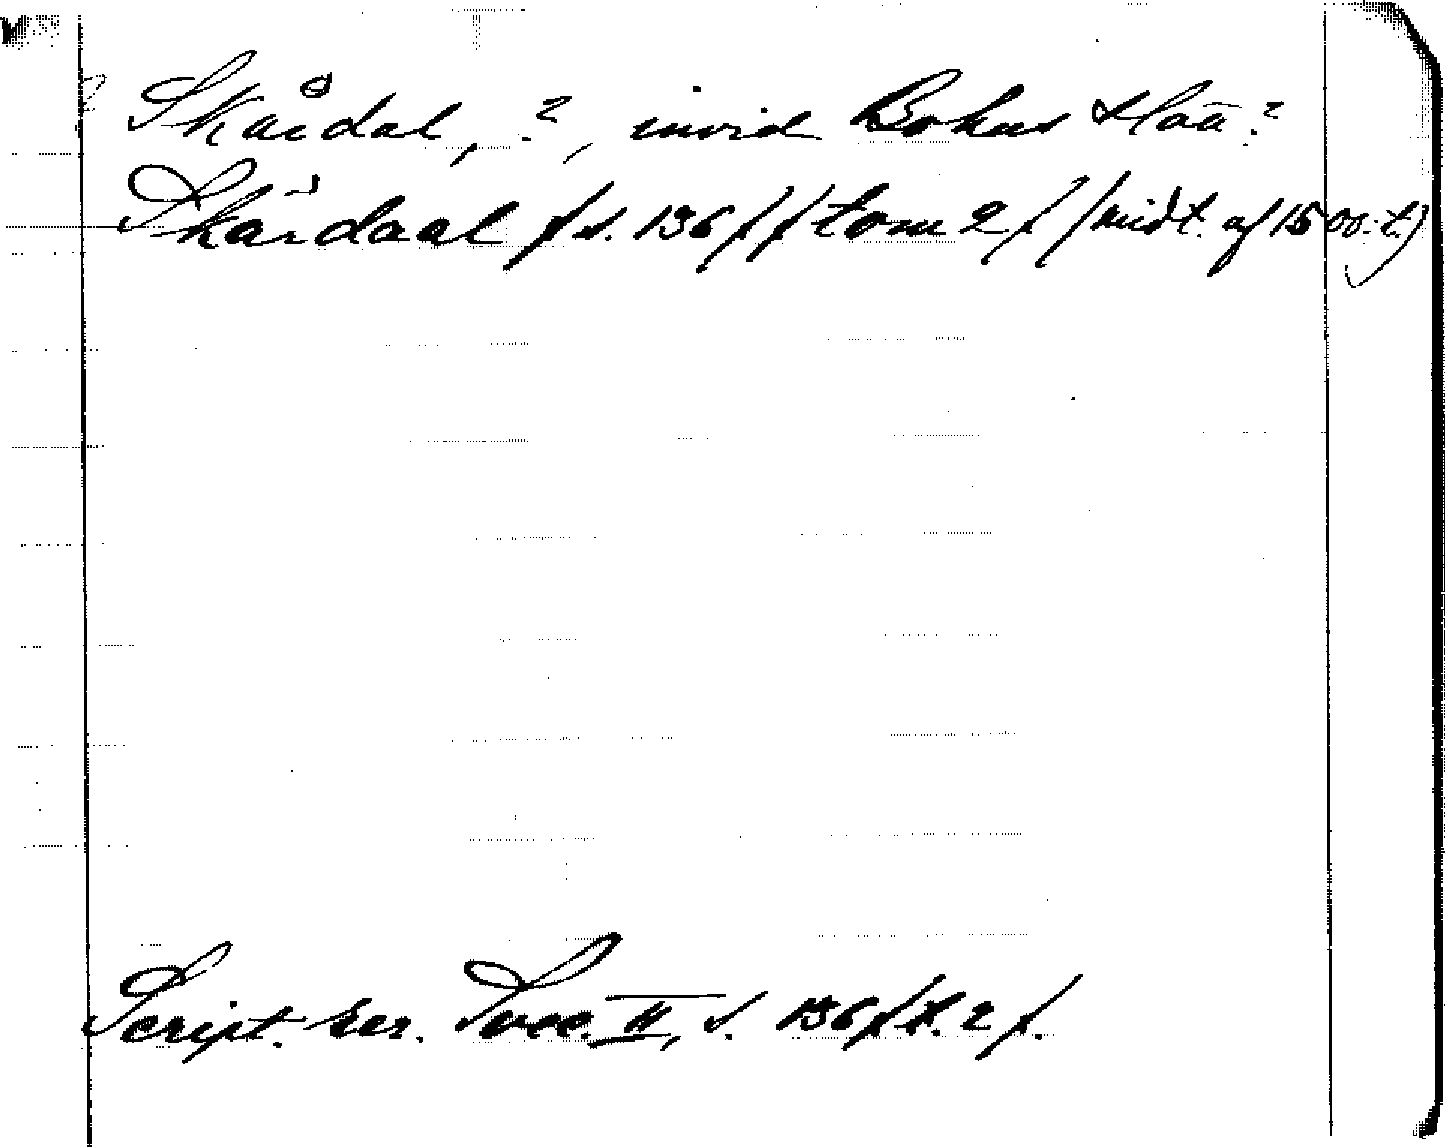 Skårdal, ?, invid Bohus
Skårdaal s. 136 tom 2 (midt. af 1500-t.)
Script. rer. Svec. II, s. 136 f. 2 f.